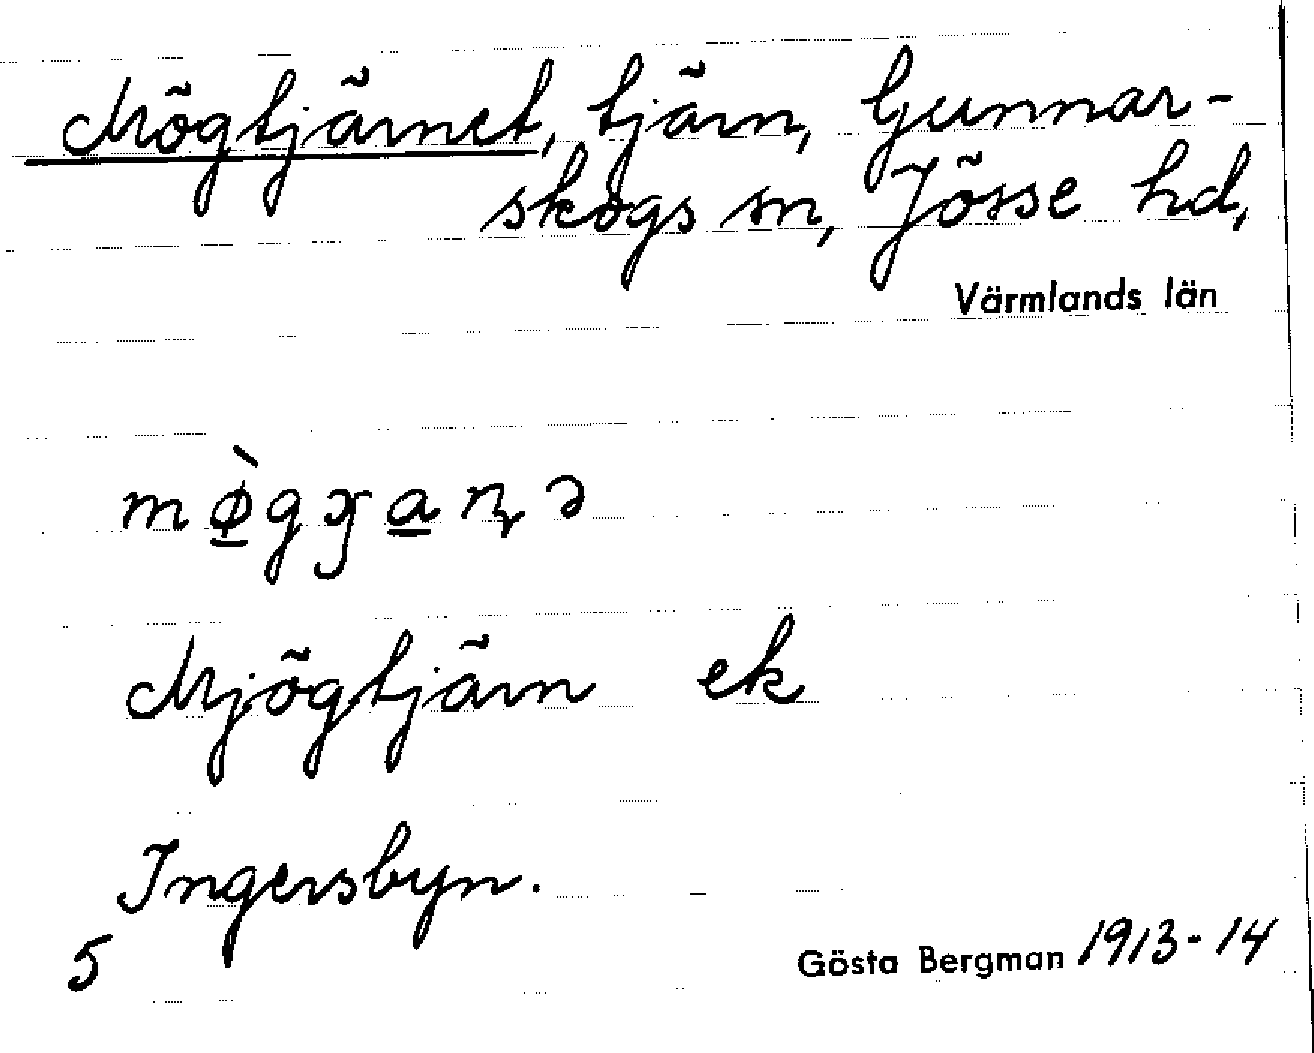 Mögtjärnet, tjärn, Gunnar-
skogs sn, Jösse hd,
Värmlands län
mø̱̀gɣa̱ɳə
Mjögtjärn ek
Ingersbyn.
5 Gösta Bergman 1913-14